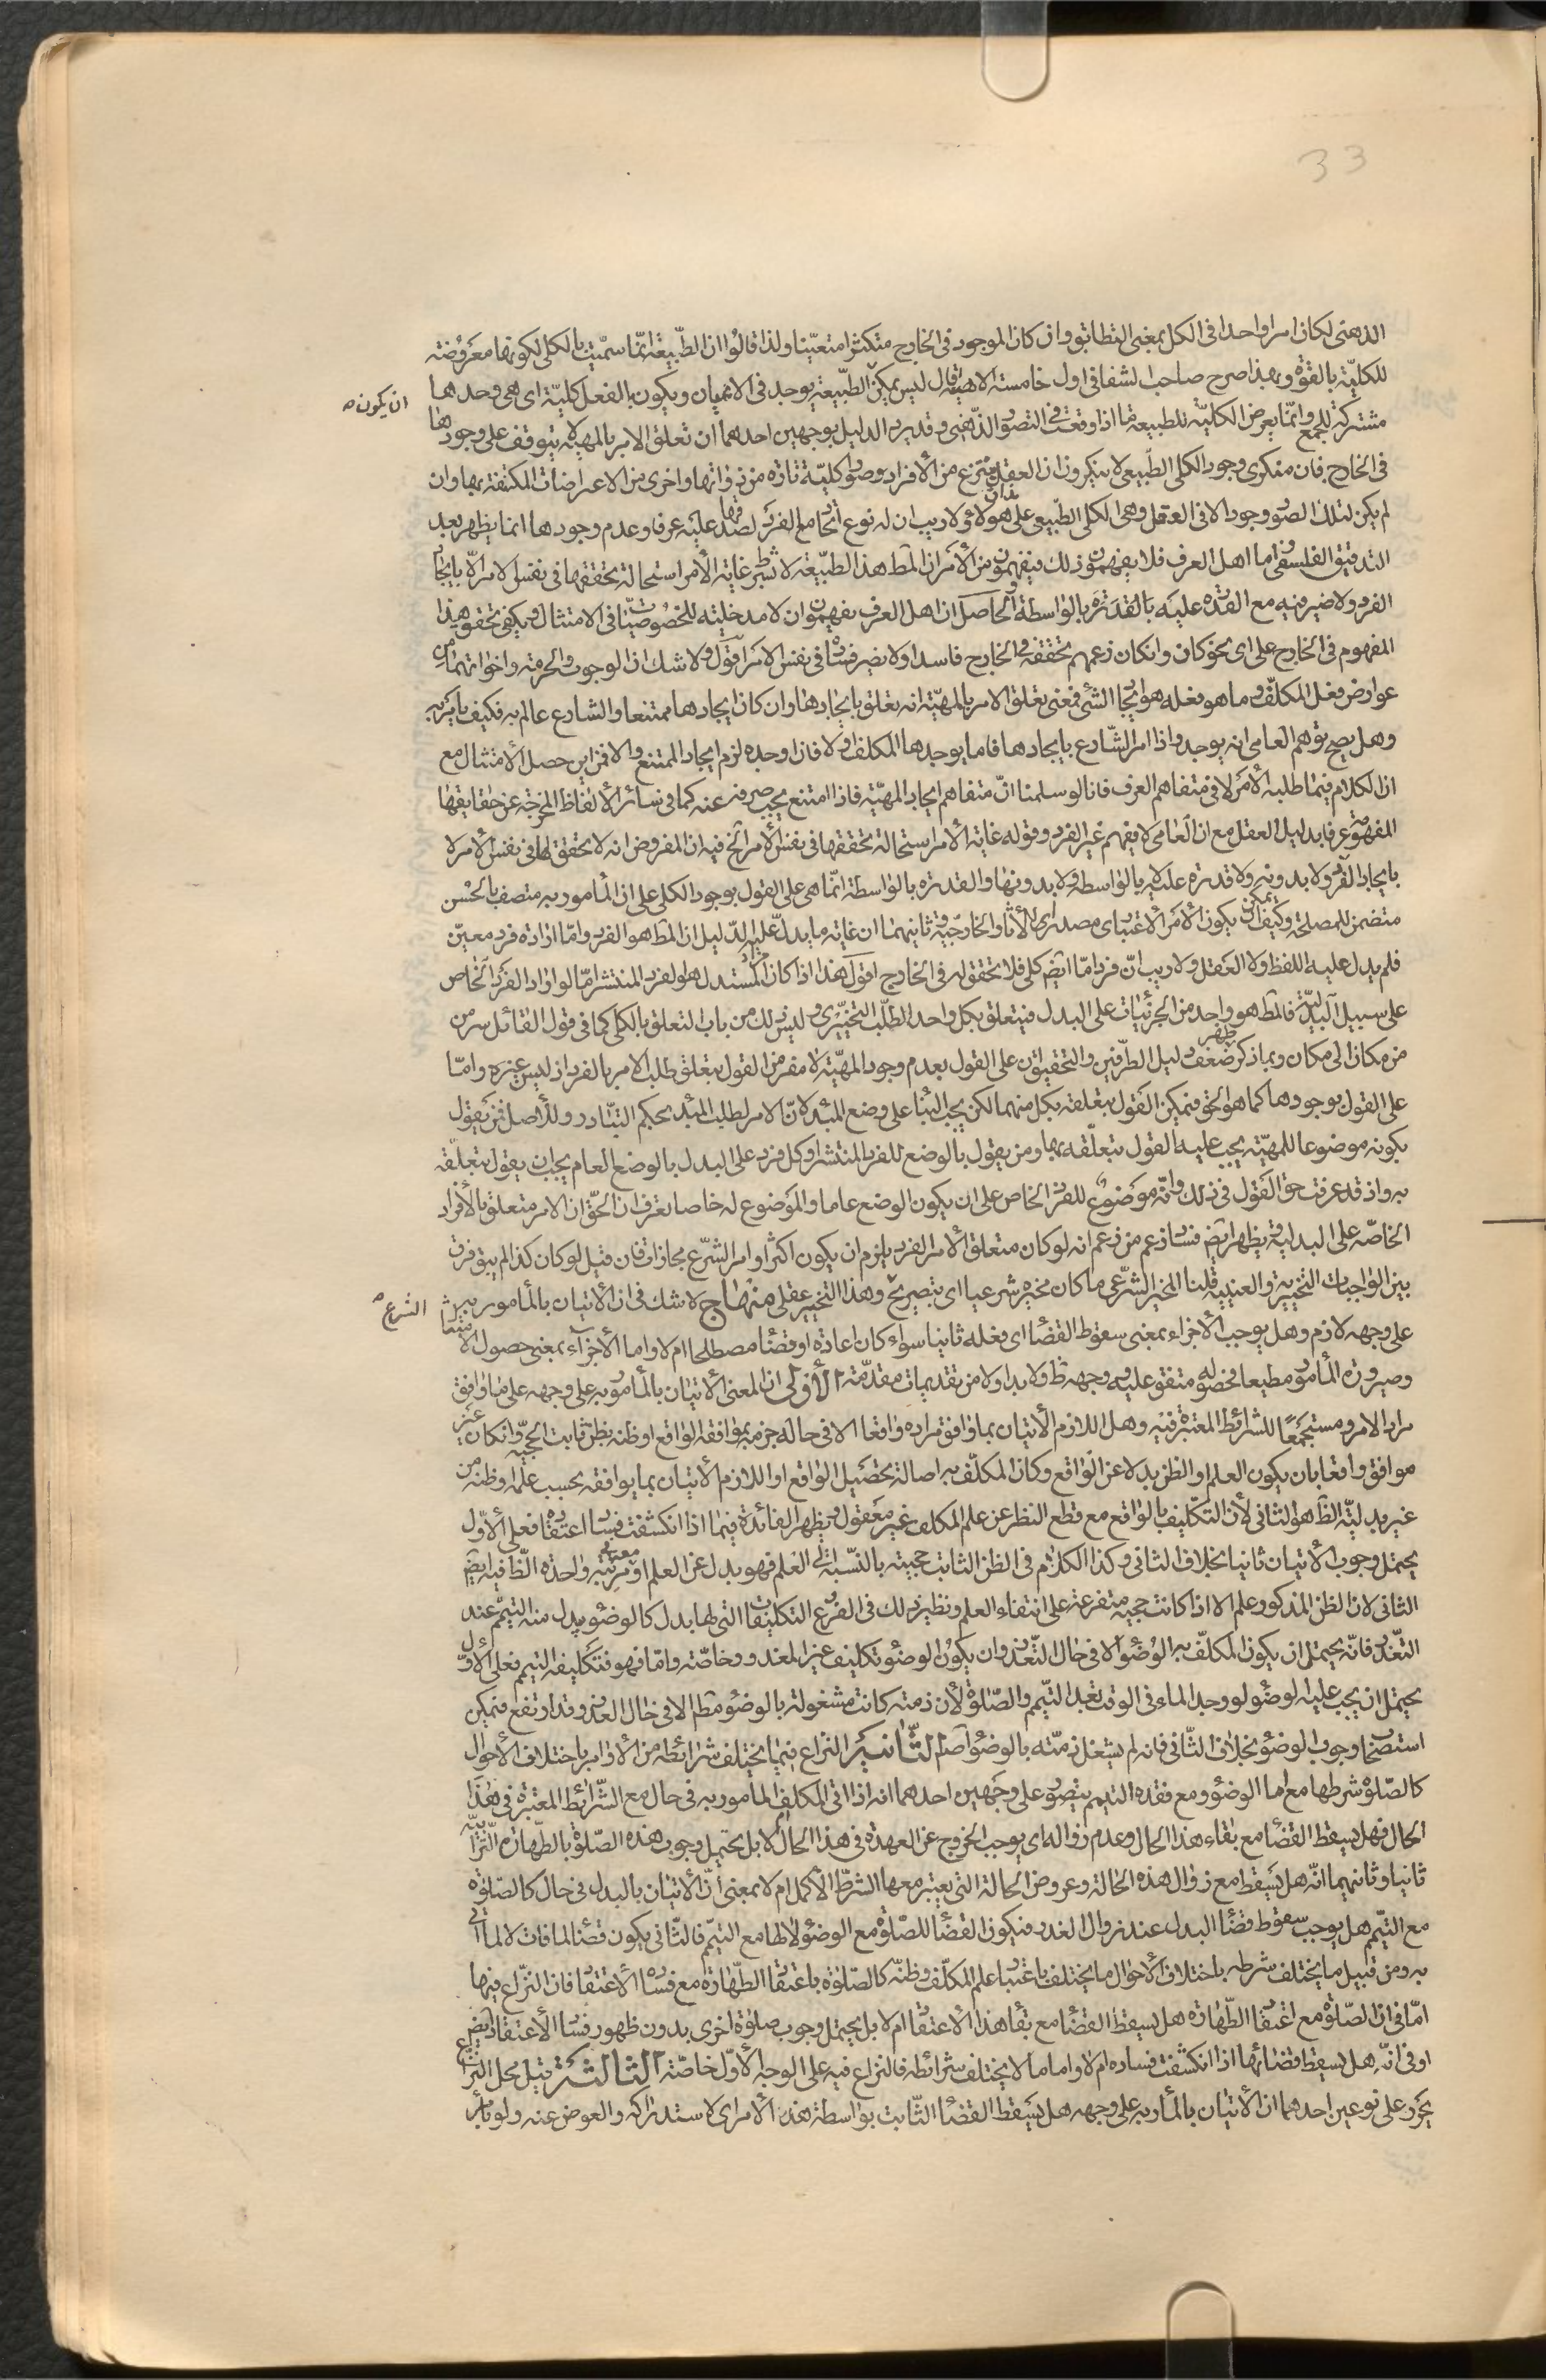 33
الذهنى لكان امرا واحدا فى الكل بمعنى التطابق وان كان الموجود فى الخارج متكثرا متعيّنا ولذا قالوا ان الطّبيعة انّما سمّيت بالكلى لكونها معروضة
للكليّة بالقوّة وبهذا صرح صاحب الشفا فى اول خامسة الالهيّة قال ليس يمكن الطّبيعة يوجد فى الاعيان ويكون بالفعل كليّة اى هى وحدها
ان يكون
مشتركة للجميع وانّما يعرض الكليّة للطبيعة ما اذا وقعت فى التصوّر الذّهنى وقد يرد الدليل بوجهين احدهما ان تعلق الامر بالمهيّة لا يتوقف على وجودها
فى الخارج فان منكرى وجود الكلى الطّبيعى لا ينكرون ان العقل ينتزع من الأفراد صورا كليّة تارة من ذواتها واخرى من الاعراضات المكتنفة بها وان
لم يكن لتلك الصّور وجود الا فى العقل وهى الكلى الطّبيعى على هؤلاء ولا ريب ان له نوع اتّحاد مع الفرد لصدقها عليه عرفا وعدم وجودها انما يظهر بعد
التدقيق الفلسفى واما اهل العرف فلا يفهمون ذلك فيفهمون من الأمر ان المط هذا الطّبيعة لا بشرط غاية الأمر استحالة تحققها فى نفس الامر الّا بايجاد
الفرد ولا ضير فيه مع القدرة عليه بالقدرة بالواسطة والحاصل ان اهل العرف يفهمون ان لا مدخلية للخصوصيّات فى الامتثال ويكفى تحقق هذا
المفهوم فى الخارج على اى نحو كان وان كان زعمهم تحققه فى الخارج فاسدا ولا يضر فساده فى نفس الامر اقول ولا شك ان الوجوب والحرمة واخواتهما من
عوارض فعل المكلف وما هو فعله هو ايجاد الشئ فمعنى تعلق الامر بالمهيّة انه تعلق بايجادها وان كان ايجادها ممتنعا والشارع عالم به فكيف يأمر به
وهل يصح توهم العامى انه يوجد واذا امر الشّارع بايجادها فاما يوجدها المكلف او لا فان اوجده لزم ايجاد الممتنع والا فمن اين حصل الأمتثال مع
ان الكلام فيما طلبه الأمر لا فى متفاهم العرف فانا لو سلمنا انّ متفاهم ايجاد المهيّة فاذا امتنع يجب صرفه عنه كما فى سائر الألفاظ المخرجة عن حقايقها
المفهومة عرفا بدليل العقل مع ان العامى لا يفهم غير الفرد وقوله غاية الأمر استحالة تحققها فى نفس الأمر الخ فيه ان المفروض انه لا تحقق لها فى نفس الأمر لا
بايجاد الفرد ولا بدونه ولا قدرة عليه لا بالواسطة ولا بدونها والقدرة بالواسطة انّما هى على القول بوجود الكلى على ان المأمور به متصف بالحسن
متضمن للمصلحة وكيف يمكن ان يكون الأمر الاعتبارى مصدرا للأثار الخارجيّة وثانيهما ان غاية ما يدلّ عليه الدّليل ان المط هو الفرد وامّا ارادة فرد معيّن
فلم يدل عليه اللفظ ولا العقل ولا ريب انّ فردا مّا ايضا كلى فلا تحقق له فى الخارج اقول هذا اذا كان مراد المستدل هو الفرد المنتشر امّا لو اراد الفرد الخاص
على سبيل البدليّة فالمط هو واحد من الجزئيات على البدل فيتعلق بكل واحد الطّلب التخييرى وليس ذلك من باب التعلق بالكلى كما فى قول القائل سر من
من مكان الى مكان وبما ذكر ظهر ضعف دليل الطّرفين والتحقيق ان على القول بعدم وجود المهيّة لا مفر من القول بتعلق طلب الامر بالفرد اذ ليس غيره وامّا
على القول بوجودها كما هو الحق فيمكن القول بتعلقه بكل منهما لكن يجب البناء على وضع المبدء لانّ الامر لطلب المبدء بحكم التّبادر وللأصل فمن يقول
بكونه موضوعا للمهيّة يجب عليه القول بتعلّقه بها ومن يقول بالوضع للفرد المنتشر او كل فرد على البدل بالوضع العام يجب ان يقول بتعلّقه
به واذ قد عرفت حق القول فى ذلك وانّه موضوع للفرد الخاص على ان يكون الوضع عاما والموضوع له خاصا تعرف ان الحقّ ان الامر متعلق بالأفراد
الخاصّة على البدليّة ويظهر ايضا فساد زعم من زعم انه لو كان متعلق الأمر الفرد يلزم ان يكون اكثر اوامر الشّرع مجازات فان قيل لو كان كذا لم يبق فرق
بين الواجبات التخييريّة والعينيّة قلنا المخير الشّرعى ما كان مخيره شرعيا اى بتصريح وهذا التخيير عقلى منهاج لا شك فى ان الأتيان بالمأمور به
الشرع
على وجهه لازم وهل يوجب الأجزاء بمعنى سقوط القضاء اى فعله ثانيا سواء كان اعادة او قضاء مصطلحا ام لا واما الأجزاء بمعنى حصول الامتثال
وصيرورة المأمور مطيعا فحصوله متفق عليه ووجهه ظ ولا بد اولا من تقديمات مقدّمة الأولى ان المعنى الأتيان بالمأمور به على وجهه على ما وافق
مراد الامر ومستجمعًا للشرائط المعتبرة فيه وهل اللازم الأتيان بما وافق مراده واقعا الا فى حالة جزمه بموافقة الواقع او ظنه بظن ثابت الحجيّة وان كان غير
موافق واقعا بان يكون العلم او الظن بدلا عن الواقع وكان المكلّف به اصالة تحصيل الواقع او اللازم الأتيان بما يوافقه بحسب علمه او ظنه من
غير بدليّة الظاهر الثانى لأن التكليف بالواقع مع قطع النظر عن علم المكلف غير معقول ويظهر الفائدة فيما اذا انكشف فساد اعتقاده فعلى الأوّل
يحتمل وجوب الأتيان ثانيا بخلاف الثانى وكذا الكلام فى الظن الثابت حجيته بالنّسبة الى العلم فهو بدل عن العلم او مرتبته معه واحدة الظ فيه ايضا
الثانى لان الظن المذكور علم الا اذا كانت حجيته متفرعة على انتفاء العلم ونظير ذلك فى الفرع التكليفات التى لها بدل كالوضوء بدل منه التيمّم عند
التّعذّر فانّه يحتمل ان يكون المكلّف به الوضوء الا فى حال التّعذّر وان يكون الوضوء تكليف غير المعذور وخاصّته وامّا فهو فتكليفه التيمم فعلى الأوّل
يحتمل ان يجب عليه الوضوء لو وجد الماء فى الوقت بعد التّيمم والصّلوة لأن ذمته كانت مشغولة بالوضوء مط الا فى حال العذر وقد ارتفع فيمكن
استصحاب وجوب الوضوء بخلاف الثّانى فانه لم يشغل ذمّته بالوضوء اصلا الثّانية النزاع فيما يختلف شرائطه من الأوامر باختلاف الأحوال
كالصّلوة شرطها مع الماء الوضوء ومع فقده التيمم يتصوّر على وجهين احدهما انه اذا اتى المكلف المأمور به فى حال مع الشّرائط المعتبرة فى هذا
الحال فهل يسقط القضاء مع بقاء هذا الحال وعدم زواله اى يوجب الخروج عن العهدة فى هذا الحال ام لا بل يحتمل وجوب هذه الصّلوة بالطّهارة التّرابيّة
ثانيا وثانيهما انّه هل يسقط مع زوال هذه الحالة وعروض الحالة التى يعتبر معها الشرط الأكمل ام لا بمعنى أنّ الأتيان بالبدل فى حال كالصّلوة
مع التيمّم هل يوجب سقوط قضاء البدل عند زوال العذر فيكون القضاء للصّلوة مع الوضوء لا لها مع التيمّم فالثّانى يكون قضاء لما فات لا لما اتى
به ومن قبيل ما يختلف شرطه باختلاف الأحوال ما يختلف باعتبار علم المكلّف وظنّه كالصّلوة باعتقاد الطّهارة مع فساد الأعتقاد فان النزاع فيها
امّا فى ان الصّلوة مع اعتقاد الطّهارة هل يسقط القضاء مع بقاء هذا الأعتقاد ام لا بل يحتمل وجوب صلوة اخرى بدون ظهور فساد الأعتقاد ايضا
او فى انّه هل يسقط قضائها اذا انكشفت فساده ام لا واما ما لا يختلف شرائطه فالنزاع فيه على الوجه الأوّل خاصّة الثالثة قيل محل النّزاع
يحرّر على نوعين احدهما ان الأتيان بالمأمور به على وجهه هل يسقط القضاء الثّابت بواسطة هذا الأمر اى لاستدراكه والعوض عنه ولو بأمر